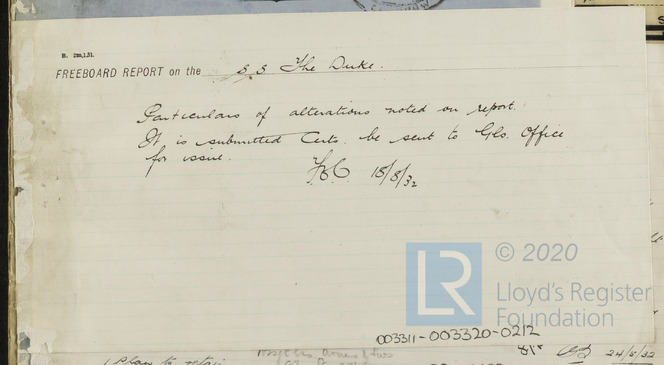 FREEBOARD REPORT on the S.S. The Duke.
Particulars of alterations noted on report.
It is submitted Certs. be sent to Gls. Office
for issue.
18/8/32
LR
© 2020
Lloyd's Register
Foundation
003311-003320-0212
24/8/32
(Plan to retain